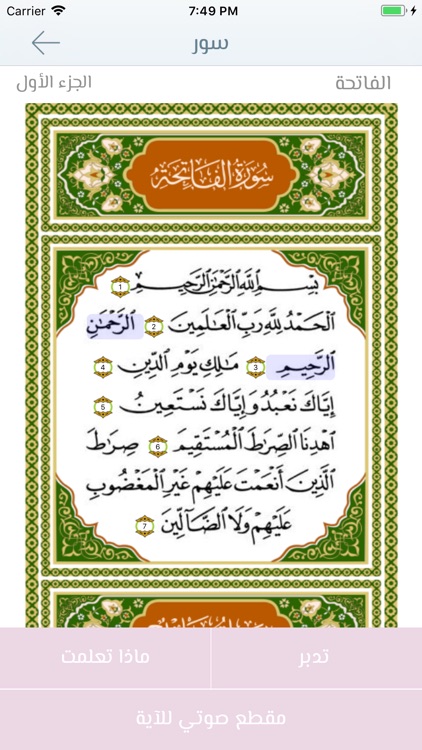 Carrier 7:49 PM
سور
الفاتحة الجزء الأول
سُورَةُ الفَاتِحَة
بِسْمِ ٱللَّهِ ٱلرَّحْمَٰنِ ٱلرَّحِيمِ 1
ٱلْحَمْدُ لِلَّهِ رَبِّ ٱلْعَٰلَمِينَ 2 ٱلرَّحْمَٰنِ
ٱلرَّحِيمِ 3 مَٰلِكِ يَوْمِ ٱلدِّينِ 4
إِيَّاكَ نَعْبُدُ وَإِيَّاكَ نَسْتَعِينُ 5
ٱهْدِنَا ٱلصِّرَٰطَ ٱلْمُسْتَقِيمَ 6 صِرَٰطَ
ٱلَّذِينَ أَنْعَمْتَ عَلَيْهِمْ غَيْرِ ٱلْمَغْضُوبِ
عَلَيْهِمْ وَلَا ٱلضَّآلِّينَ 7
تدبر ماذا تعلمت
مقطع صوتي للآية